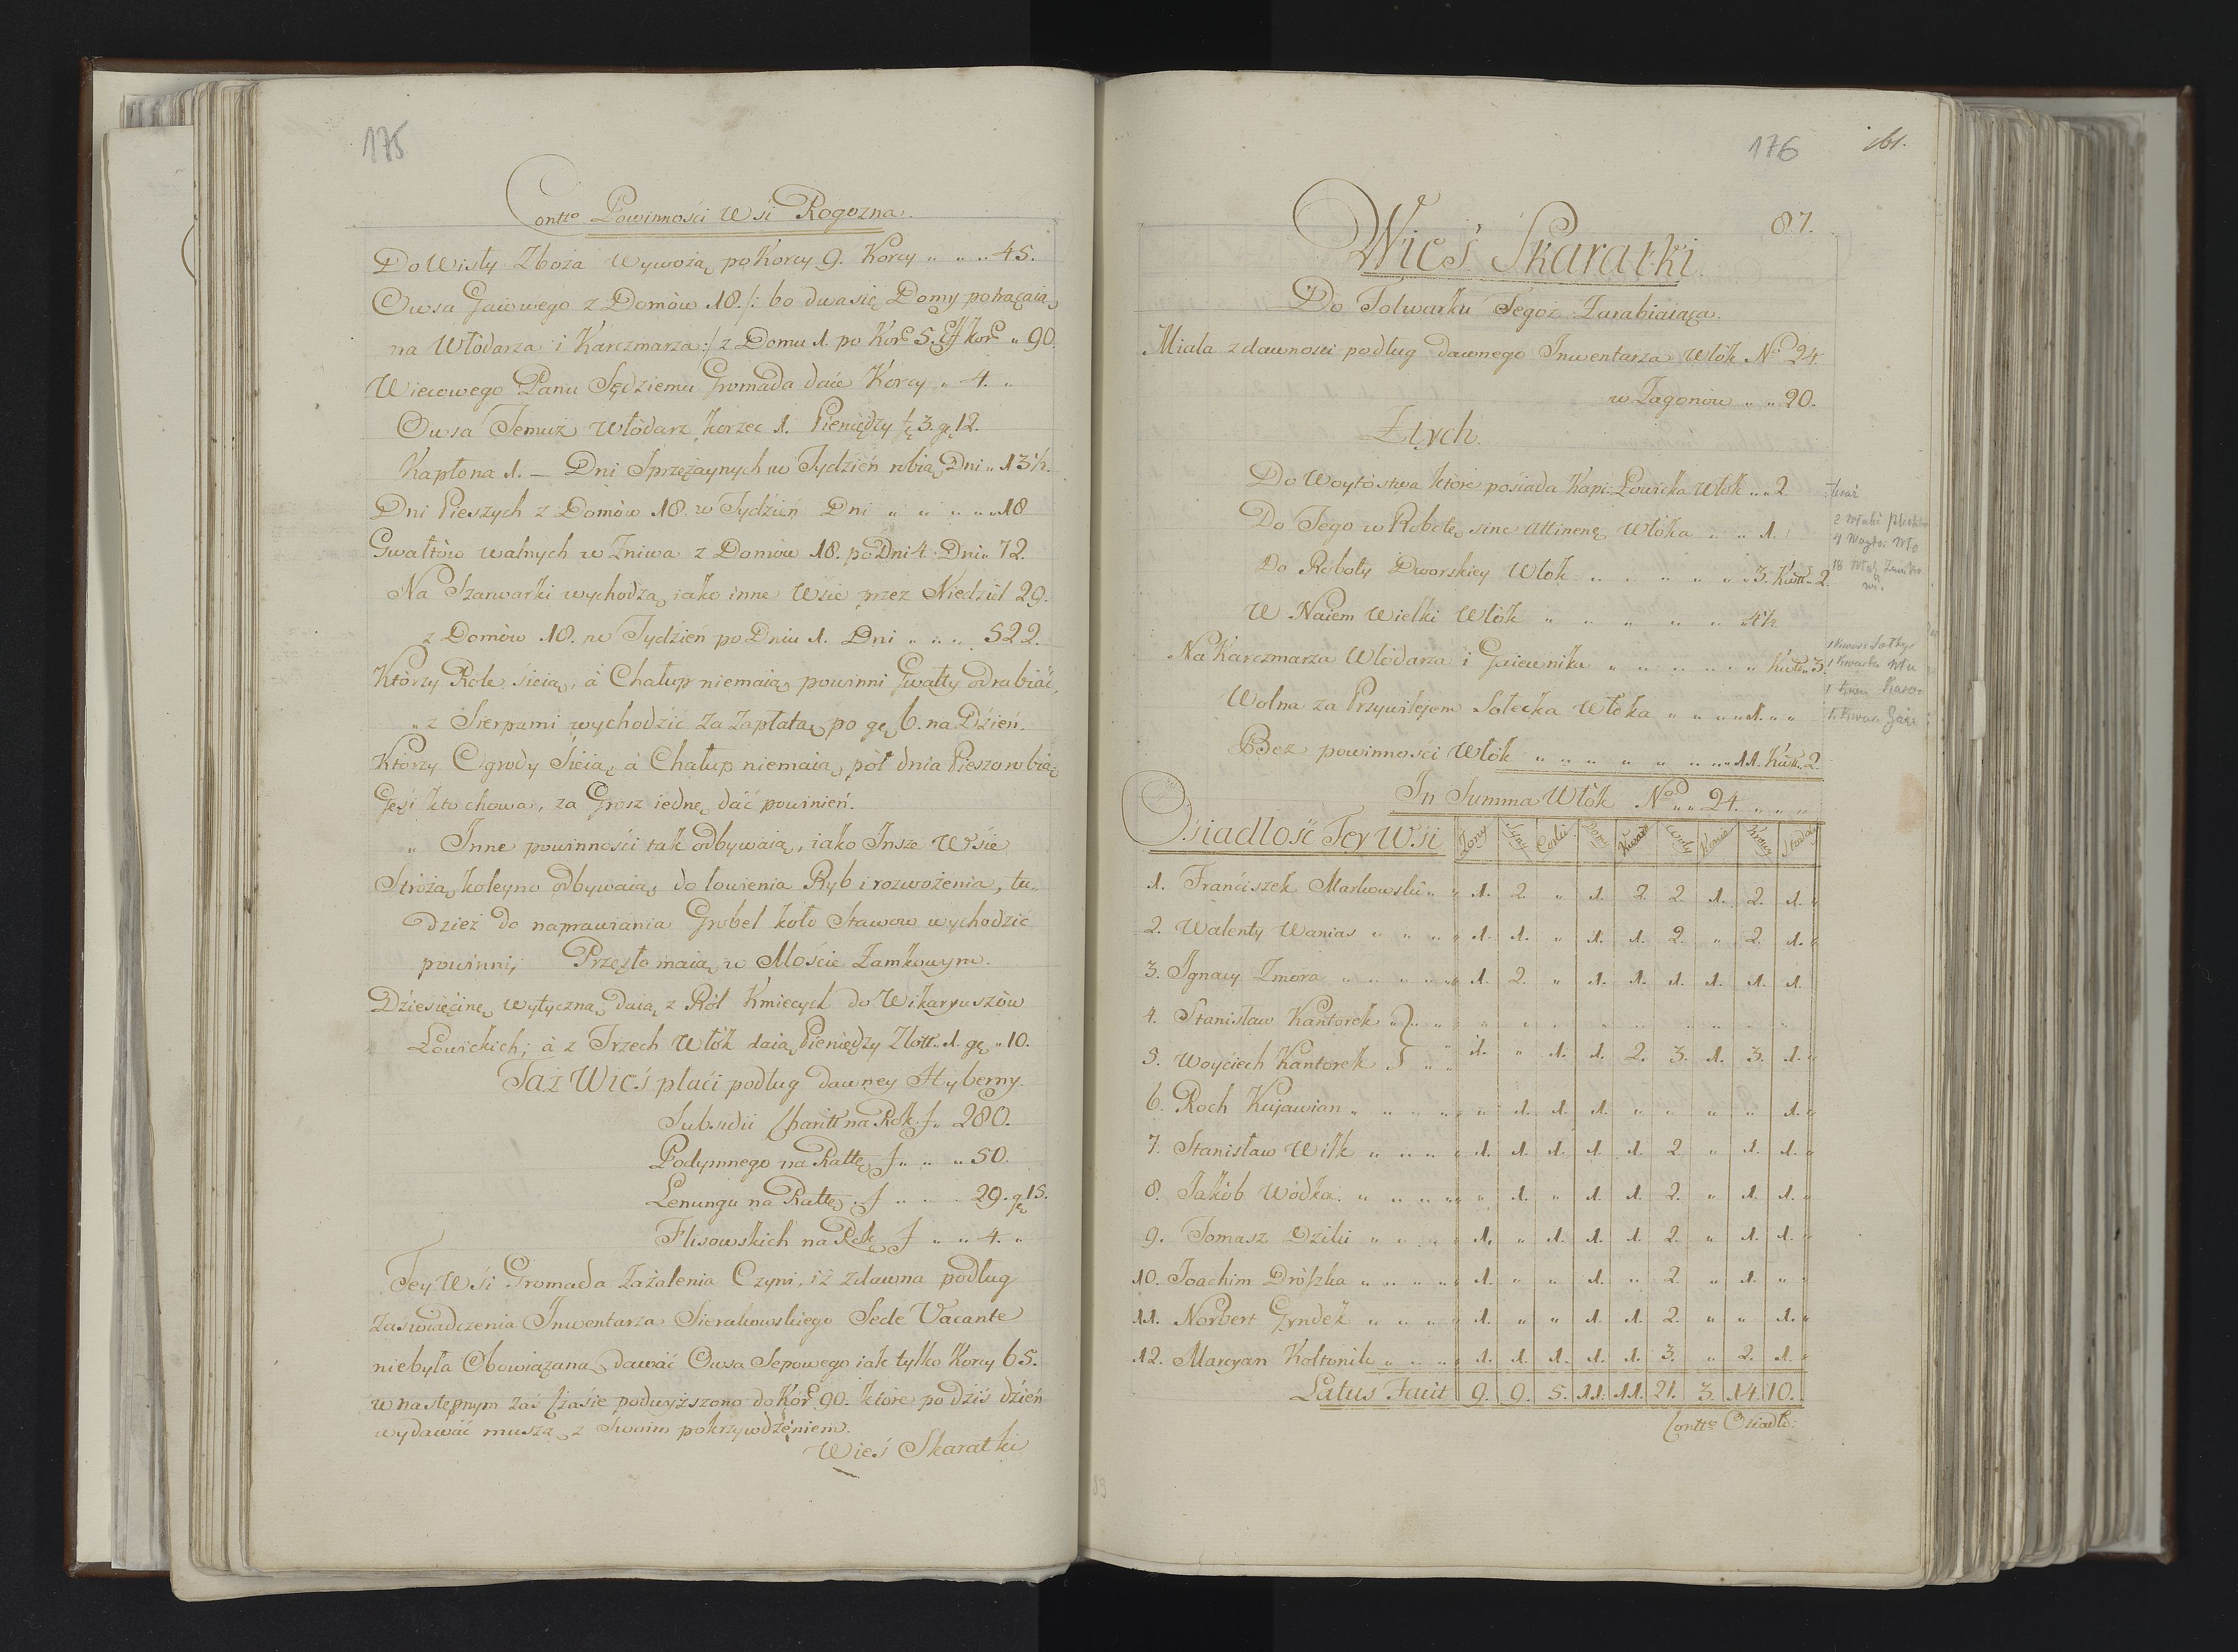 175
Contto Powinnosci Wsi Rogozna.
Do Wisły Zboża wywożą po Korcy 9. Korcy „ „ „ 45.
Owsa Gaiowego z Domów 18. /: bo dwa się Domy potrącaią
na Włodarza i Karczmarza :/ z Domu 1. po Kor 5. kor „ 90.
Wiecowego Panu Sędziemu Gromada daie Korcy „ 4. „
Owsa Temuż Włodarz korzec 1. Pieniędzy 3. gę 12.
Kapłona 1. — Dni Sprzężaynych w Tydzień robią Dni „ 13½.
Dni Pieszych z Domów 18. w Tydzień Dni „ „ „ „ 18
Gwałtów walnych w Żniwa z Domów 18. po Dni 4. Dni „ 72.
Na Szarwarki wychodzą iako inne Wsie przez Niedziel 29.
z Domów 18. w Tydzień po Dniu 1. Dni „ „ „ 522.
Którzy Role sieią, à Chałup niemaią powinni Gwałty odrabiać,
„ z Sierpami wychodzić za Zapłatą po gę 6. na Dzień.
Którzy Ogrody Sieią à Chałup niemaią, pół dnia Pieszo robią
Gęsi kto chowa, za Grosz iednę dać powinień.
„ Inne powinności tak odbywaią, iako Insze Wsie
Stróżą koleyno odbywaią, do łowienia Ryb i rozwożenia, tu„
dzież do naprawiania Grobel koło Stawow wychodzić
powinni, Przęsło maią w Moście Zamkowym.
Dziesięcinę wytyczną daią z Ról Kmiecych do Wikaryuszów
Łowickich; à z Trzech Włók daią Pieniędzy Złott. 1. gę „ 10.
Taż Wieś płaci podług dawney Hyberny.
Subsidii Charitt na Rok f. 280.
Podymnego na Rattę f „ „ „ 50.
Lenungu na Rattę f „ „ 29. gę 15.
Flisowskich na Rok f „ „ 4. „
Tey Wsi Gromada Zażalenia Czyni, iż zdawna podług
Zaswiadczenia Inwentarza Sierakowskiego Sede Vacante
niebyła Obowiązana dawać Owsa Sepowego iak tylko Korcy 65.
w następnym zaś Czasie podwyższono do Kor 90. które po dziś dzień
wydawać muszą z Swoim pokrzywdzeniem.
Wieś Skaratki
176
161.
87.
Wieś Skaratki.
Do Folwarku Tegoż Zarabiaiąca.
Miała zdawności podług dawnego Inwentarza Włók No 24
w Zagonow „ „ 20.
Z tych
Do Woytostwa które posiada Kapi: Łowicka Włók „ „ 2
Do Tego w Robotę sine Attinenę Włóka „ „ 1.
Do Roboty Dworskiey Włók „ „ „ „ „ „ 3. Kwtt. 2.
W Naiem Wielki Włók „ „ „ „ „ „ 4½
Na Karczmarza Włodarza i Gaiewnika „ „ „ „ „ Kwtt. 3.
Wolna za Przywilejem Sołecka Włóka „ „ „ „ 1. „ „
Bez powinności Włók „ „ „ „ „ „ „ 11. Kwtt. 2.
In Summa Włók No „ „ 24. „ „ „
Osiadłość Tey Wsi Żony Syny Corki Domy Kwarty Woły Konie Krowy
1. Franciszek Markowski „ „ 1. 2. „ 1. 2. 2. 1. 2. 1. „
2. Walenty Wanias „ „ „ „ 1. 1. „ 1. 1. 2. „ 2. 1. „
3. Ignacy Zmora „ „ „ „ „ 1. 2. „ 1. 1. 1. 1. 1. 1.
4. Stanisław Kantorek „ } „ „ „ „ „ „ „ „ „ „ „
5. Woyciech Kantorek „ „ 1. „ 1. 1. 2. 3. 1. 3. 1. „
6. Roch Kujawian „ „ „ „ „ 1. 1. 1. „ „ „ „ 1. „
7. Stanisław Wilk „ „ „ „ 1. 1. 1. 1. 1. 2. „ 1. 1. „
8. Jakób Wódka. „ „ „ „ „ 1. „ 1. 1. 2. „ 1. 1. „
9. Tomasz Dziki „ „ „ „ 1. „ 1. 1. 1. 2. „ 1. 1. „
10. Joachim Drószka „ „ „ „ 1. „ „ 1. „ 2. „ 1. „ „
11. Norbert Gyndek „ „ „ „ 1. „ „ 1. 1. 2. „ „ 1. „
12. Marcyan Kołtonik „ „ „ 1. 1. 1. 1. 1. 3. „ 2. 1. „
Latus Facit 9. 9. 5. 11. 11. 21. 3. 14. 10.
Contto Osiadło: